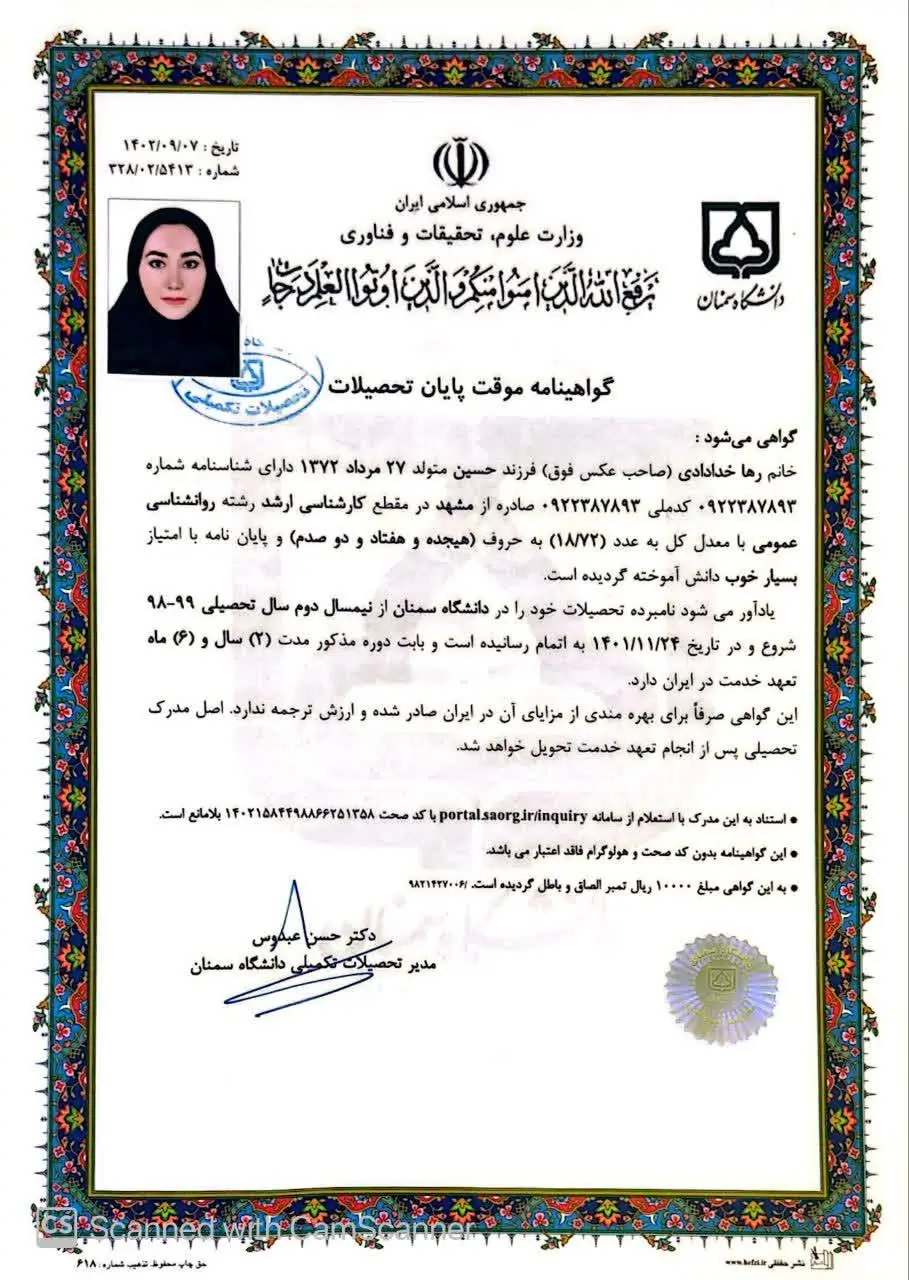 تاریخ : ۱۴۰۲/۰۹/۰۷
شماره : ۳۲۸/۰۲/۵۴۱۳
جمهوری اسلامی ایران
وزارت علوم، تحقیقات و فناوری
یرفع الله الذین امنوا منکم و الذین اوتوا العلم درجات
دانشگاه سمنان
تحصیلات تکمیلی
گواهینامه موقت پایان تحصیلات
گواهی می‌شود :
خانم رها خدادادی (صاحب عکس فوق) فرزند حسین متولد ۲۷ مرداد ۱۳۷۲ دارای شناسنامه شماره
۰۹۲۲۳۸۷۸۹۳ کدملی ۰۹۲۲۳۸۷۸۹۳ صادره از مشهد در مقطع کارشناسی ارشد رشته روانشناسی
عمومی با معدل کل به عدد (۱۸/۷۲) به حروف (هیجده و هفتاد و دو صدم) و پایان نامه با امتیاز
بسیار خوب دانش آموخته گردیده است.
یادآور می شود نامبرده تحصیلات خود را در دانشگاه سمنان از نیمسال دوم سال تحصیلی ۹۹-۹۸
شروع و در تاریخ ۱۴۰۱/۱۱/۲۴ به اتمام رسانیده است و بابت دوره مذکور مدت (۲) سال و (۶) ماه
تعهد خدمت در ایران دارد.
این گواهی صرفاً برای بهره مندی از مزایای آن در ایران صادر شده و ارزش ترجمه ندارد. اصل مدرک
تحصیلی پس از انجام تعهد خدمت تحویل خواهد شد.
• استناد به این مدرک با استعلام از سامانه portal.saorg.ir/inquiry با کد صحت ۱۴۰۲۱۵۸۴۴۹۸۸۶۶۲۵۱۳۵۸ بلامانع است.
• این گواهینامه بدون کد صحت و هولوگرام فاقد اعتبار می باشد.
• به این گواهی مبلغ ۱۰۰۰۰ ریال تمبر الصاق و باطل گردیده است. /۹۸۲۱۴۲۷۰۰۶
دکتر حسن عبدوس
مدیر تحصیلات تکمیلی دانشگاه سمنان
CS Scanned with CamScanner
نشر حفظی www.hefzi.ir
حق چاپ محفوظ. تذهیب شماره : ۶۱۸